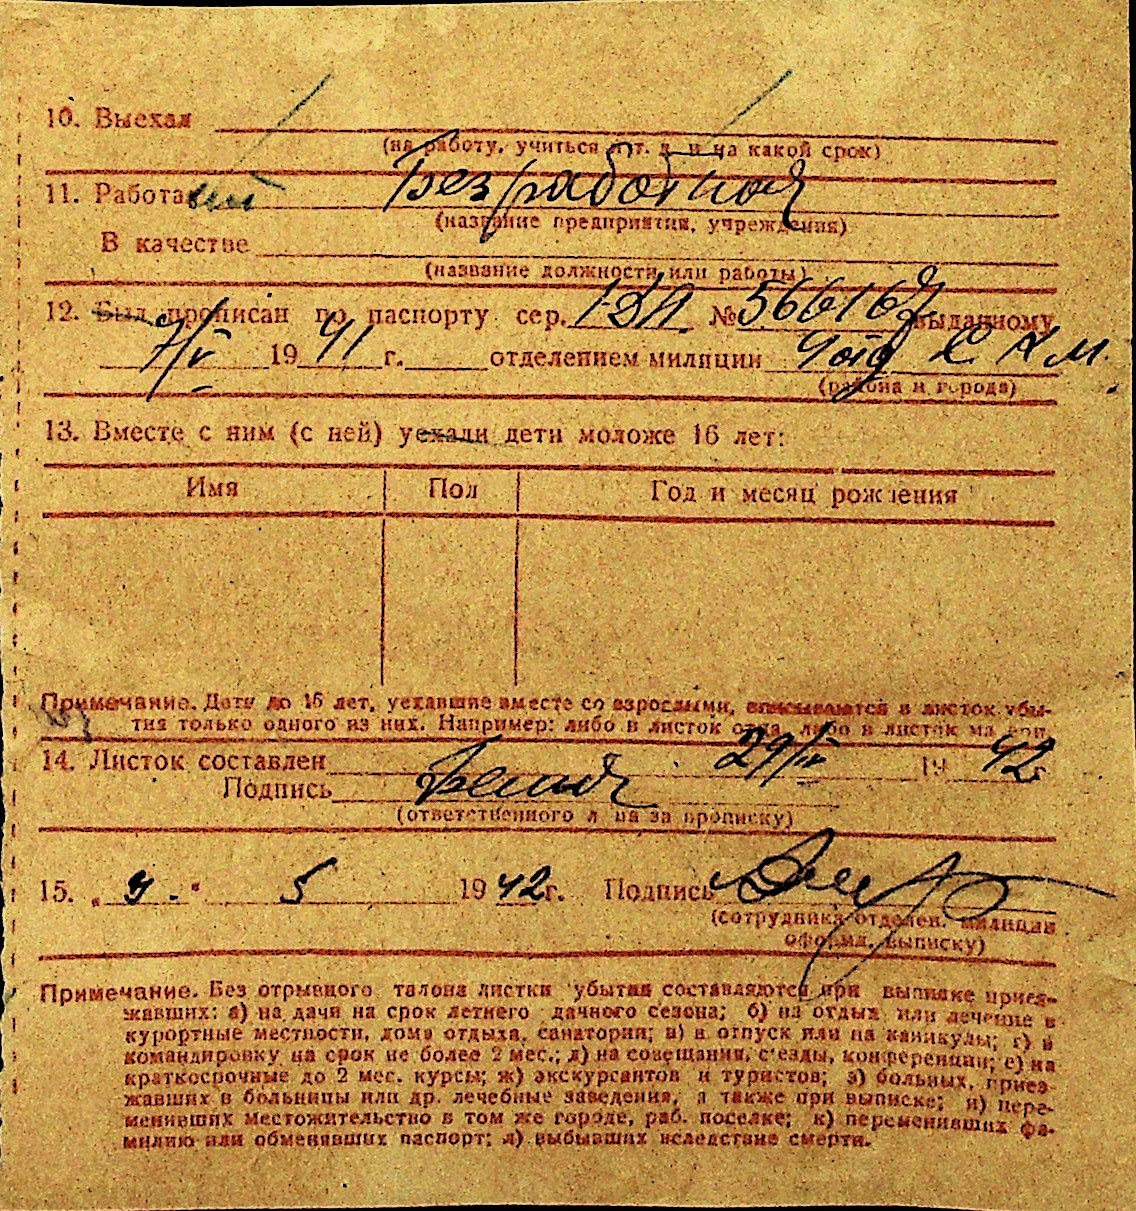 10. Выехал
(на работу, учиться и т. д. и на какой срок)
11. Работа Безработная
(название предприятия, учреждения)
В качестве
(название должности или работы)
12. Был прописан по паспорту сер. № 566167 выданному
7/V 1941 г. отделением милиции
(района и города)
13. Вместе с ним (с ней) уехали дети моложе 16 лет:
Имя Пол Год и месяц рождения
Примечание. Дети до 16 лет, уехавшие вместе со взрослыми, вписываются в листок убы-
тия только одного из них. Например: либо в листок отца, либо в листок матери.
14. Листок составлен 29/IV 1942 г.
Подпись
(ответственного лица за прописку)
15. „ “ 5 1942 г. Подпись
(сотрудника отделен. милиции
оформ. выписку)
Примечание. Без отрывного талона листки убытия составляются при выписке приез-
жавших: а) на дачи на срок летнего дачного сезона; б) на отдых или лечение в
курортные местности, дома отдыха, санатории; в) в отпуск или на каникулы; г) в
командировку на срок не более 2 мес.; д) на совещания, съезды, конференции; е) на
краткосрочные до 2 мес. курсы; ж) экскурсантов и туристов; з) больных, приез-
жавших в больницы или др. лечебные заведения, а также при выписке; и) пере-
менивших местожительство в том же городе, раб. поселке; к) переменивших фа-
милию или обменявших паспорт; л) выбывших вследствие смерти.